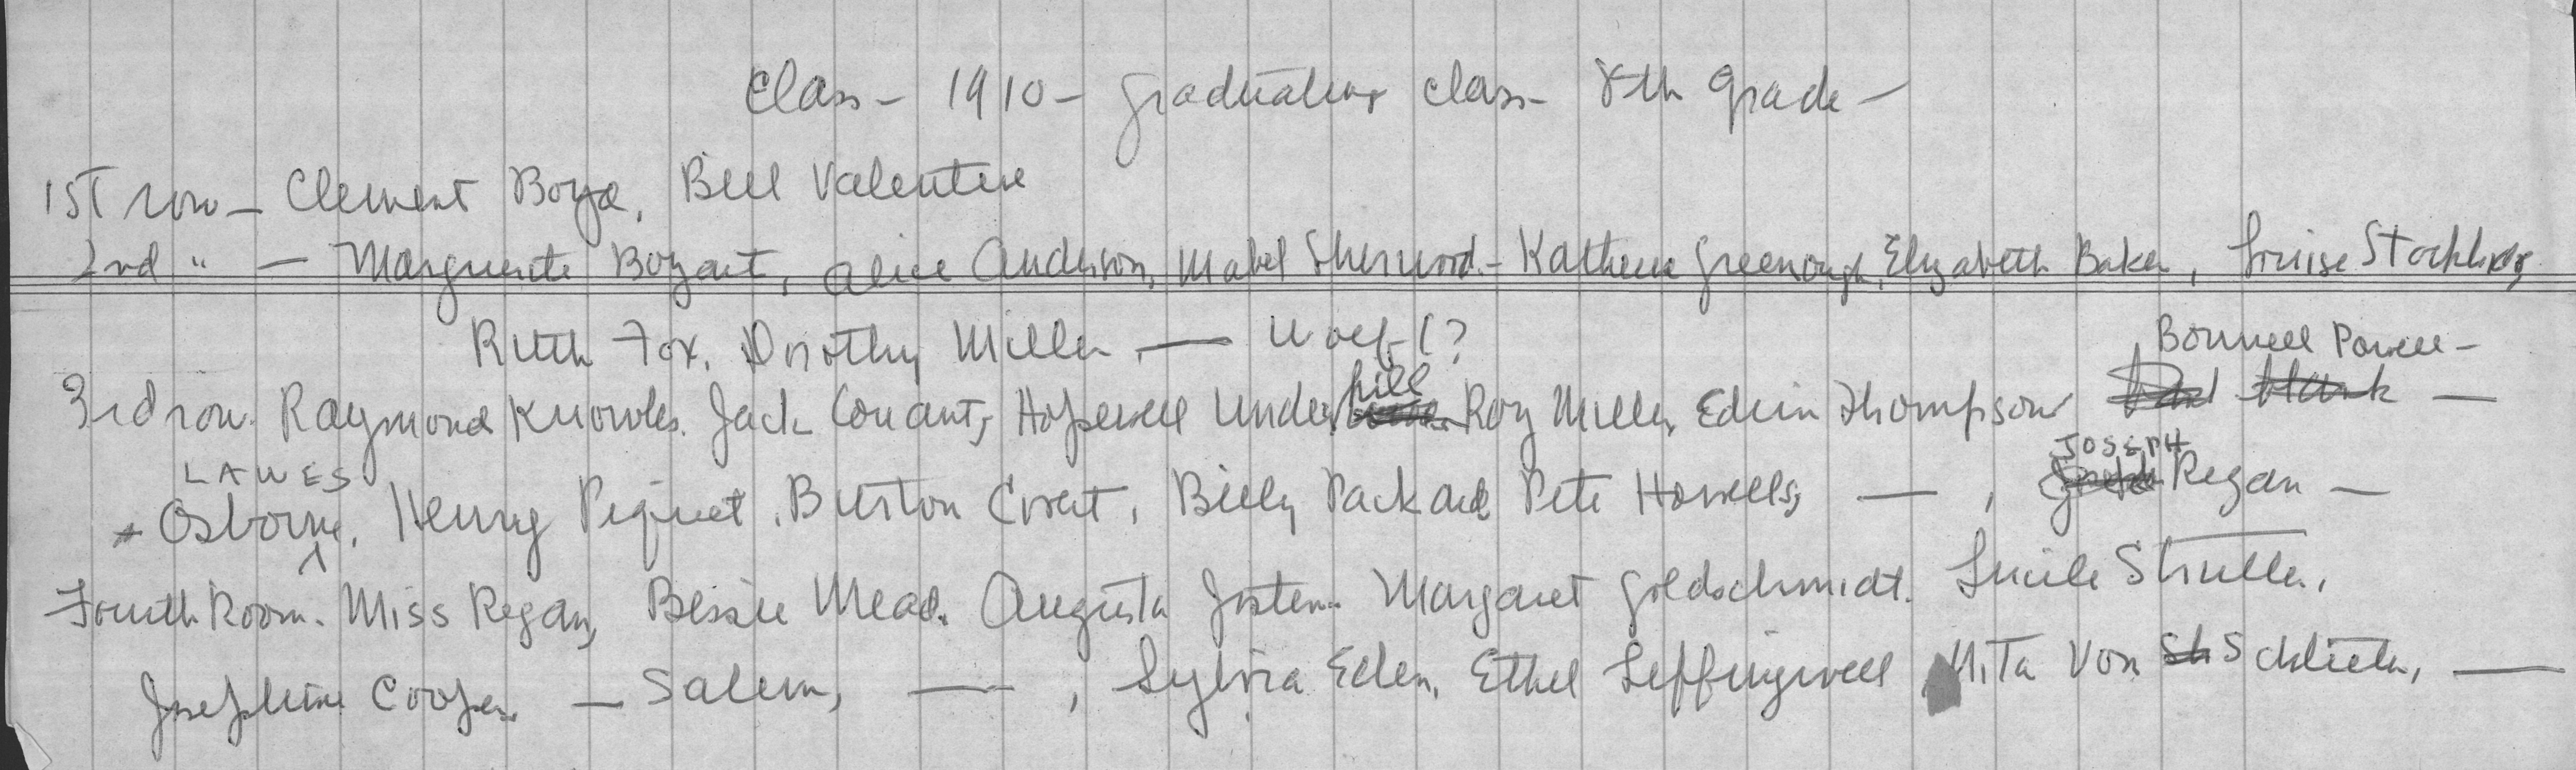 Class - 1910 - graduating class - 8th grade -
1ST row - Clement Boyd, Bill Valentine
2nd " - Marguerite Bogart, Alice Anderson, Mabel Sherwood - Katherine Greenough, Elizabeth Baker, Louise Stocking
Ruth Fox. Dorothy Miller, — Woelfl?
Bonnell Powell -
hill
3rd row. Raymond Knowles. Jack Conant, Hopewell Under Roy Miller, Edwin Thompson —
LAWES JOSEPH
Osborne, Henry Piquet, Burton Covert, Billy Packard, Pete Howells, — , Regan —
Fourth Room. Miss Regan, Bessie Mead. Augusta Josten. Margaret Goldschmidt. Lucile
Josephine Cooper. — Salem, — , Sylvia Eden, Ethel Leffingwell Mita Von —